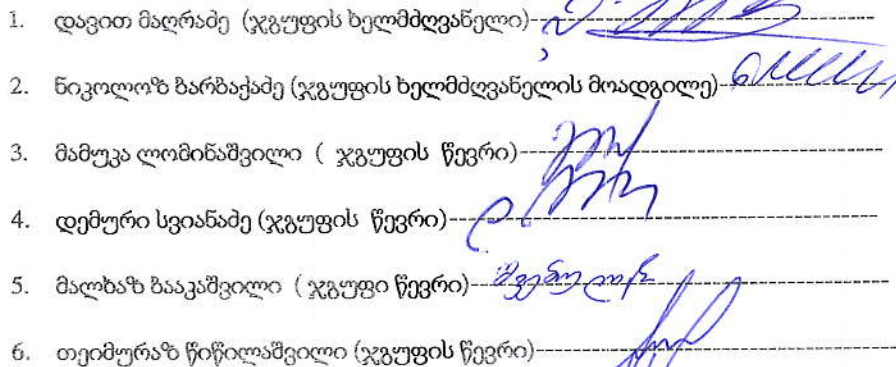 1. დავით მაღრაძე (ჯგუფის ხელმძღვანელი)
2. ნიკოლოზ ბარბაქაძე (ჯგუფის ხელმძღვანელის მოადგილე)
3. მამუკა ლომინაშვილი ( ჯგუფის წევრი)
4. დემური სვიანაძე (ჯგუფის წევრი)
5. მალხაზ ბააკაშვილი ( ჯგუფი წევრი)
6. თეიმურაზ წიწილაშვილი (ჯგუფის წევრი)